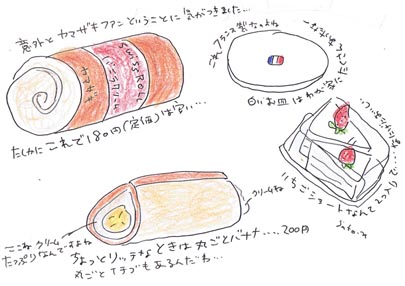 意外とヤマザキファンということに気がつきました…
SWISS ROLL
ヤマザキ
たしかにこれで180円(定価)は安い…
これフランス製なのよね
白いお皿はわが家に
いちごショートなんて2つ入り
クリームね
ここね クリーム
たっぷりなんですよね
ちょっとリッチなときは丸ごとバナナ….200円
丸ごとイチゴもあるんだわ…